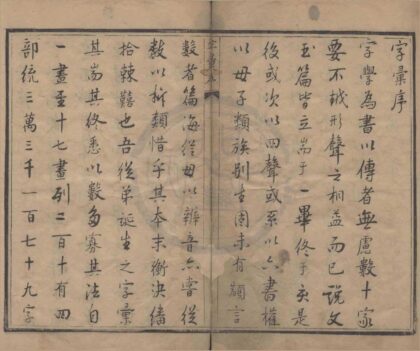 字彙序
字學為書以傳者無慮數十家
要不越形聲之相益而已說文
玉篇皆立耑于一畢終于亥是
後或次以四聲或系以六書權
以母子類族別生固未有顓言
數者篇海從母以辨音六書從
數以 類惜乎其本末衡決繙
拾棘囏也吾從弟誕生之字彙
其耑其終悉以數多寡其法自
一畫至十七畫列二百十有四
部統三萬三千一百七十九字